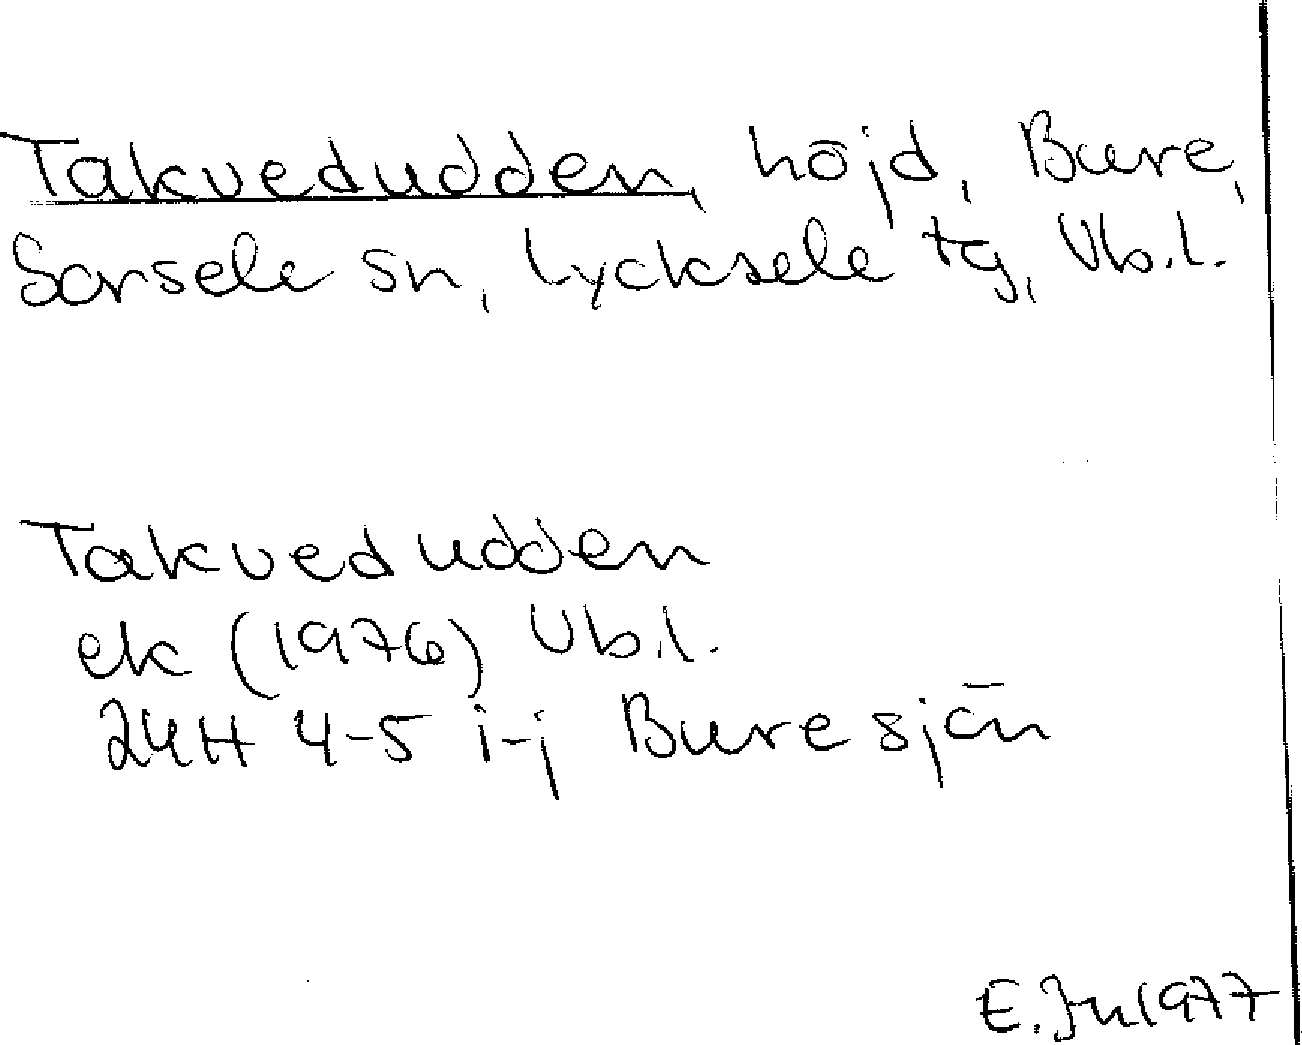 Takvedudden, höjd, Bure,
Sorsele sn, Lycksele tg, Vb.l.
Takvedudden
ek (1976) Vb.l.
24H 4-5 i-j Buresjön
E. Ju 1977